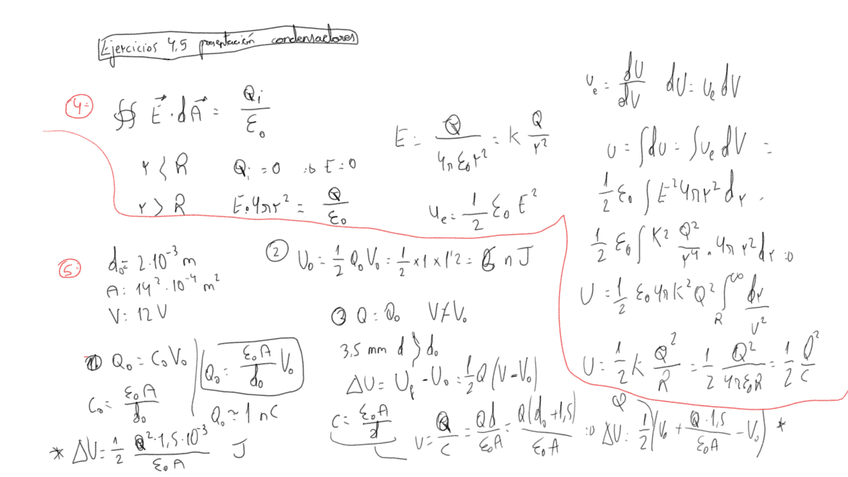 Ejercicios 4,5 presentación condensadores
4:
∯ E⃗ · dA⃗ = Qi / ε₀
r < R   Qi = 0 ⇒ E = 0
r > R   E · 4πr² = Q / ε₀
E = Q / 4πε₀r² = K Q / r²
ue = 1/2 ε₀ E²
ue = dU / dV   dU = ue dV
u = ∫du = ∫ue dV =
1/2 ε₀ ∫ E² 4πr² dr .
1/2 ε₀ ∫ K² Q² / r⁴ · 4πr² dr ⇒
U = 1/2 ε₀ 4π K² Q² ∫_R^∞ dr / r²
U = 1/2 K Q² / R = 1/2 Q² / 4πε₀R = 1/2 Q² / C
5:
d₀ = 2·10⁻³ m
A: 14²·10⁻⁴ m²
V: 12 V
1 Q₀ = C₀V₀
Q₀ = ε₀A / d₀ V₀
C₀ = ε₀A / d₀
Q₀ ≈ 1 nC
* ΔU = 1/2 Q²·1,5·10⁻³ / ε₀A J
2 U₀ = 1/2 Q₀V₀ = 1/2 × 1 × 1'2 = 6 n J
3 Q = Q₀   V ≠ V₀
3,5 mm d } d₀
ΔU = Uf - U₀ = 1/2 Q (V - V₀)
C = ε₀A / d
V = Q / C = Qd / ε₀A = Q(d₀ + 1,5) / ε₀A ⇒ ΔU = 1/2 Q (V₀ + Q·1,5 / ε₀A - V₀) *